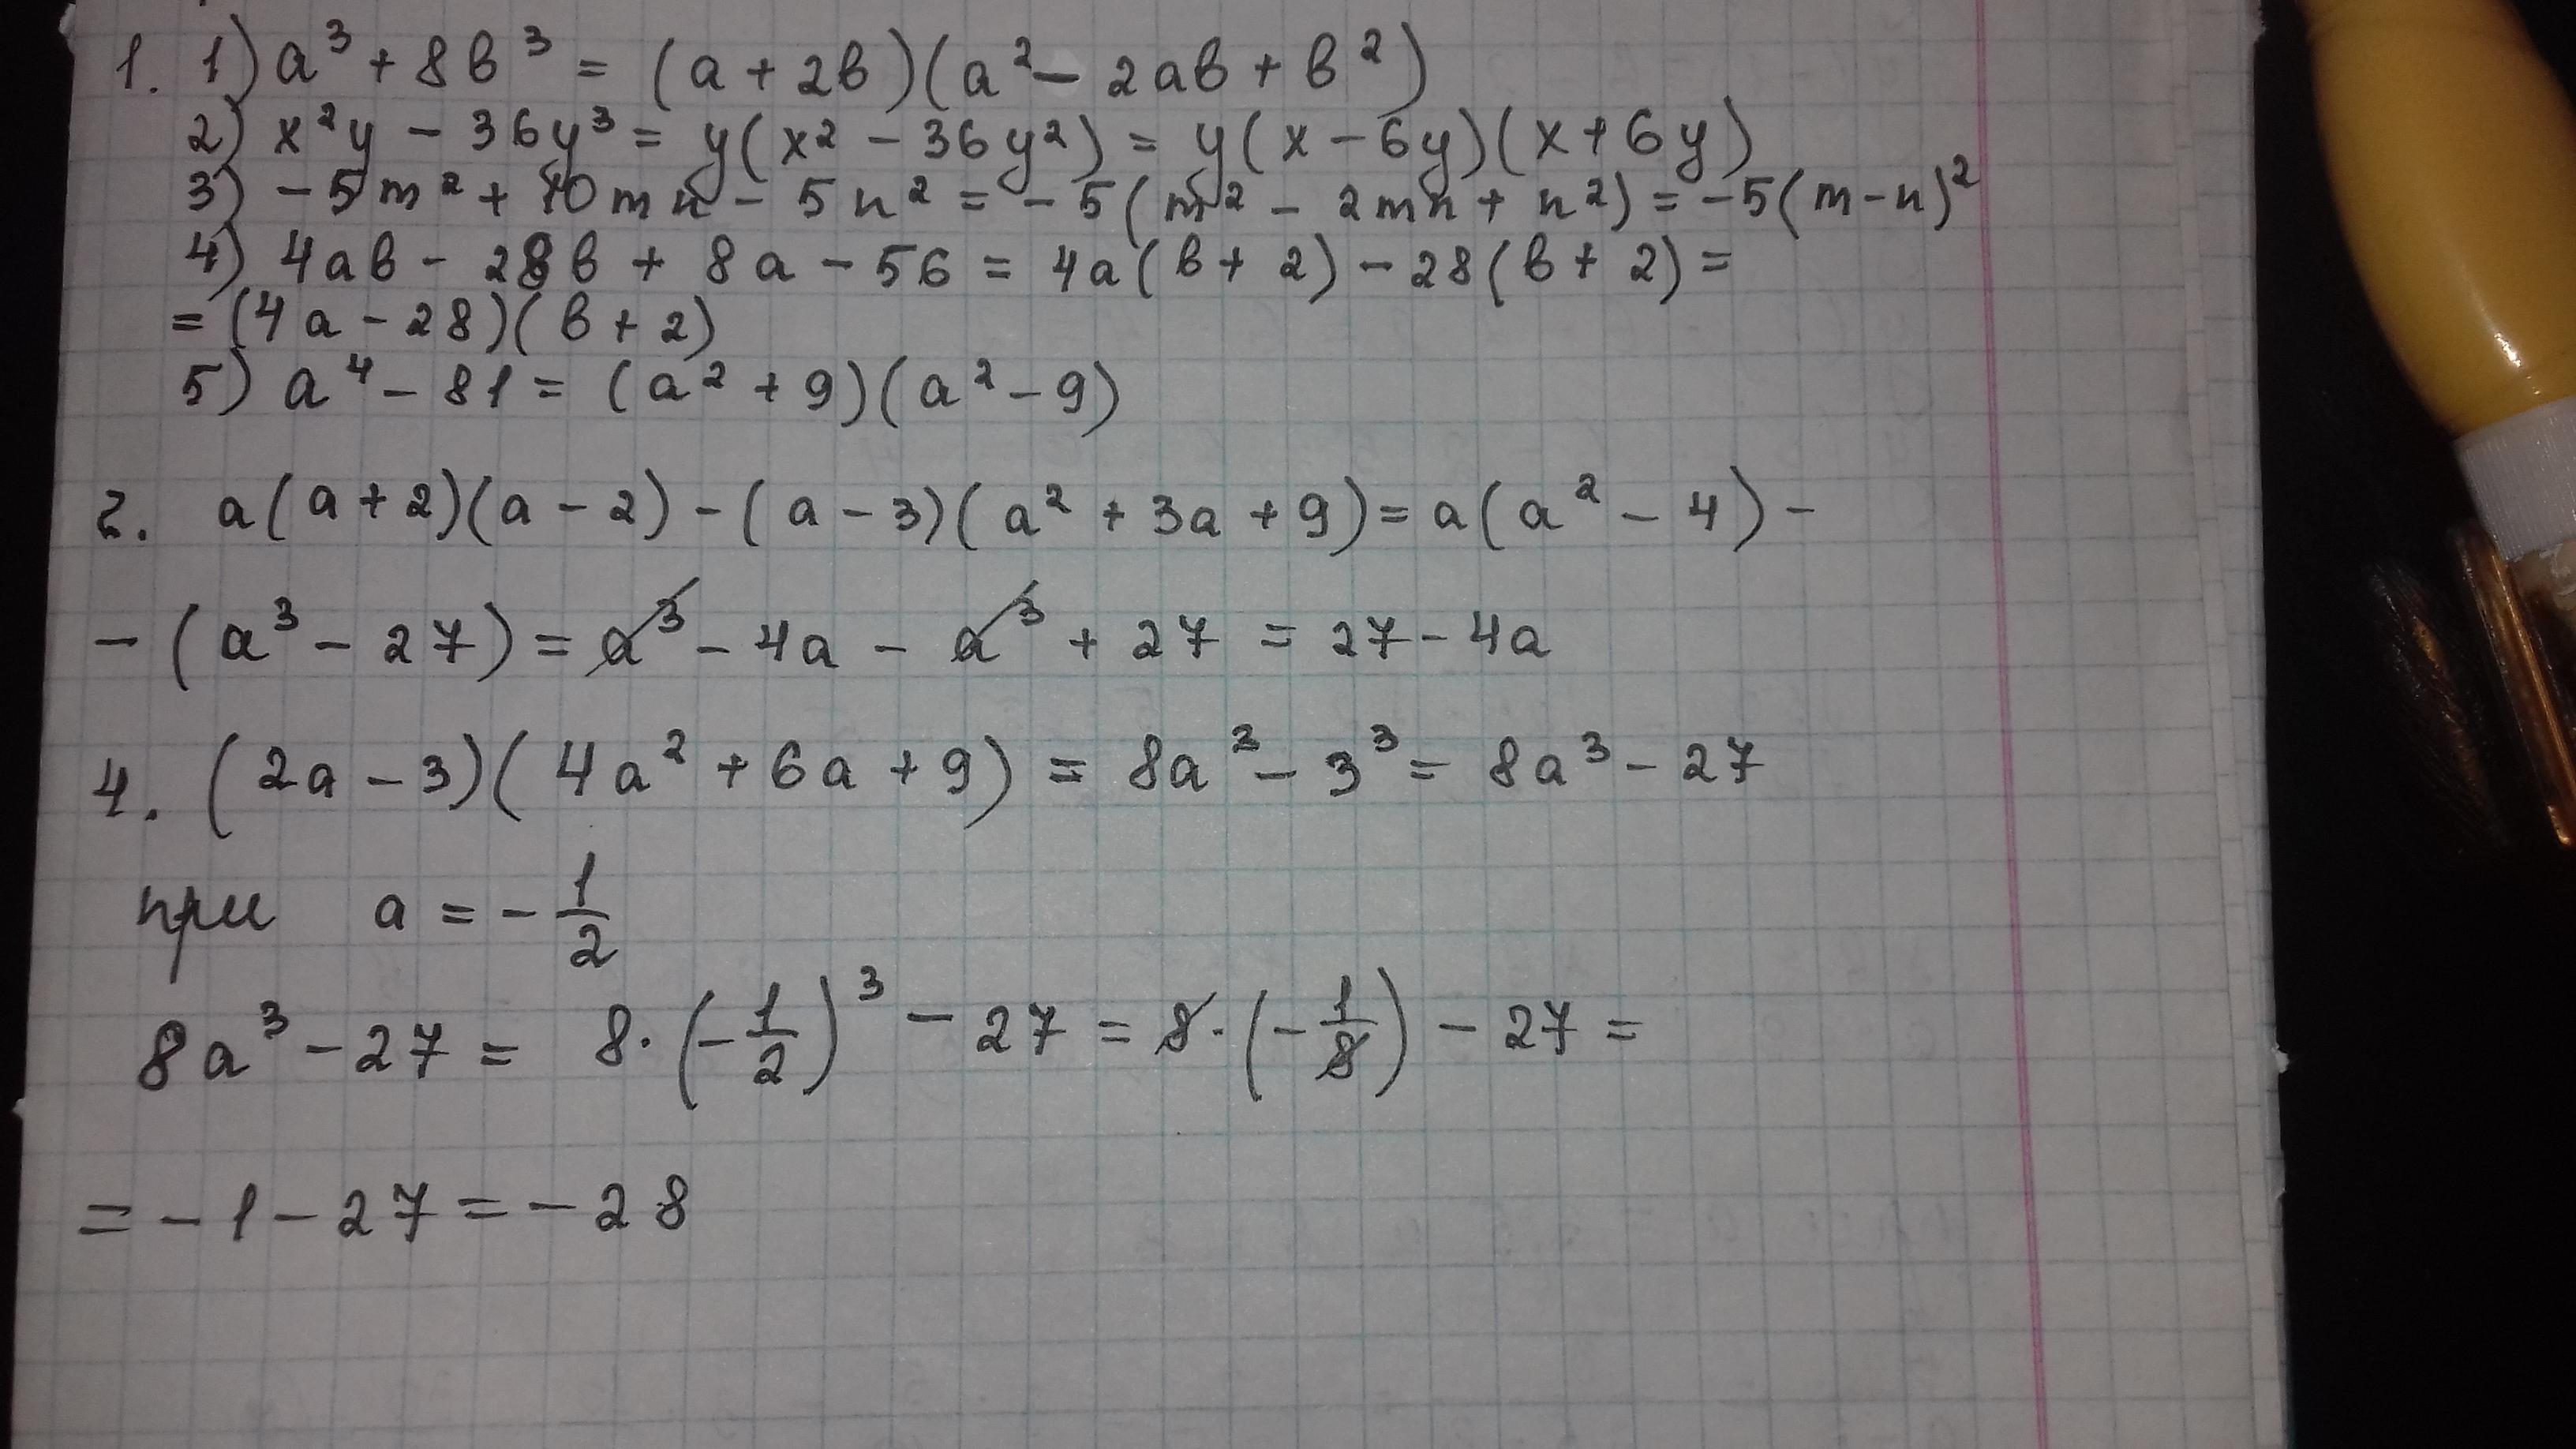 1. 1) a³ + 8в³ = (a + 2в)(a² - 2aв + в²)
2) x²y - 36y³ = y(x² - 36y²) = y(x - 6y)(x + 6y)
3) -5m² + 10mn - 5n² = -5(m² - 2mn + n²) = -5(m-n)²
4) 4aв - 28в + 8a - 56 = 4a(в + 2) - 28(в + 2) =
= (4a - 28)(в + 2)
5) a⁴ - 81 = (a² + 9)(a² - 9)
2. a(a + 2)(a - 2) - (a - 3)(a² + 3a + 9) = a(a² - 4) -
- (a³ - 27) = a³ - 4a - a³ + 27 = 27 - 4a
4. (2a - 3)(4a² + 6a + 9) = 8a³ - 3³ = 8a³ - 27
при a = -1/2
8a³ - 27 = 8·(-1/2)³ - 27 = 8·(-1/8) - 27 =
= -1 - 27 = -28